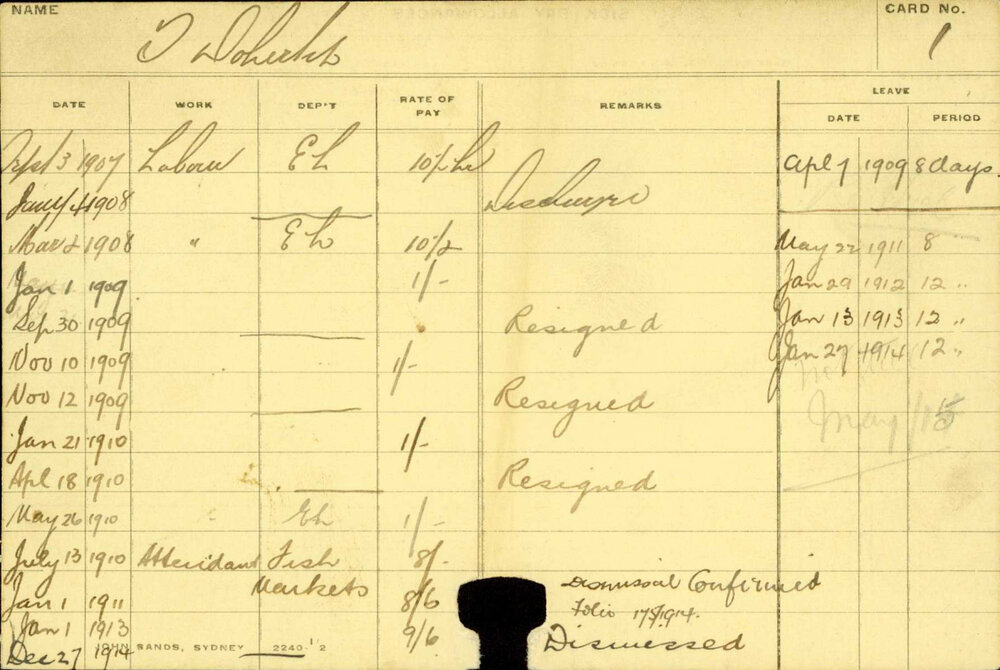 NAME T Doherty CARD No. 1
DATE WORK DEP'T RATE OF PAY REMARKS LEAVE
DATE PERIOD
Sept 3 1907 Labour Eh 10½ hr Apl 7 1909 8 days
Jany 4 1908 Discharged
Mar 2 1908 " Eh 10½ May 22 1911 8
Jan 1 1909 1/- Jan 29 1912 12 "
Sep 30 1909 Resigned Jan 13 1913 12 "
Nov 10 1909 1/- Jan 27 1914 12 "
Nov 12 1909 Resigned
May/15
Jan 21 1910 1/-
Apl 18 1910 Resigned
May 26 1910 " Eh 1/-
July 13 1910 Attendant Fish Markets 8/-
Jan 1 1911 8/6 Dismissal Confirmed
Jan 1 1913 9/6 Folio 1914.
Dec 27 1914 Dismissed
JOHN SANDS, SYDNEY 2240